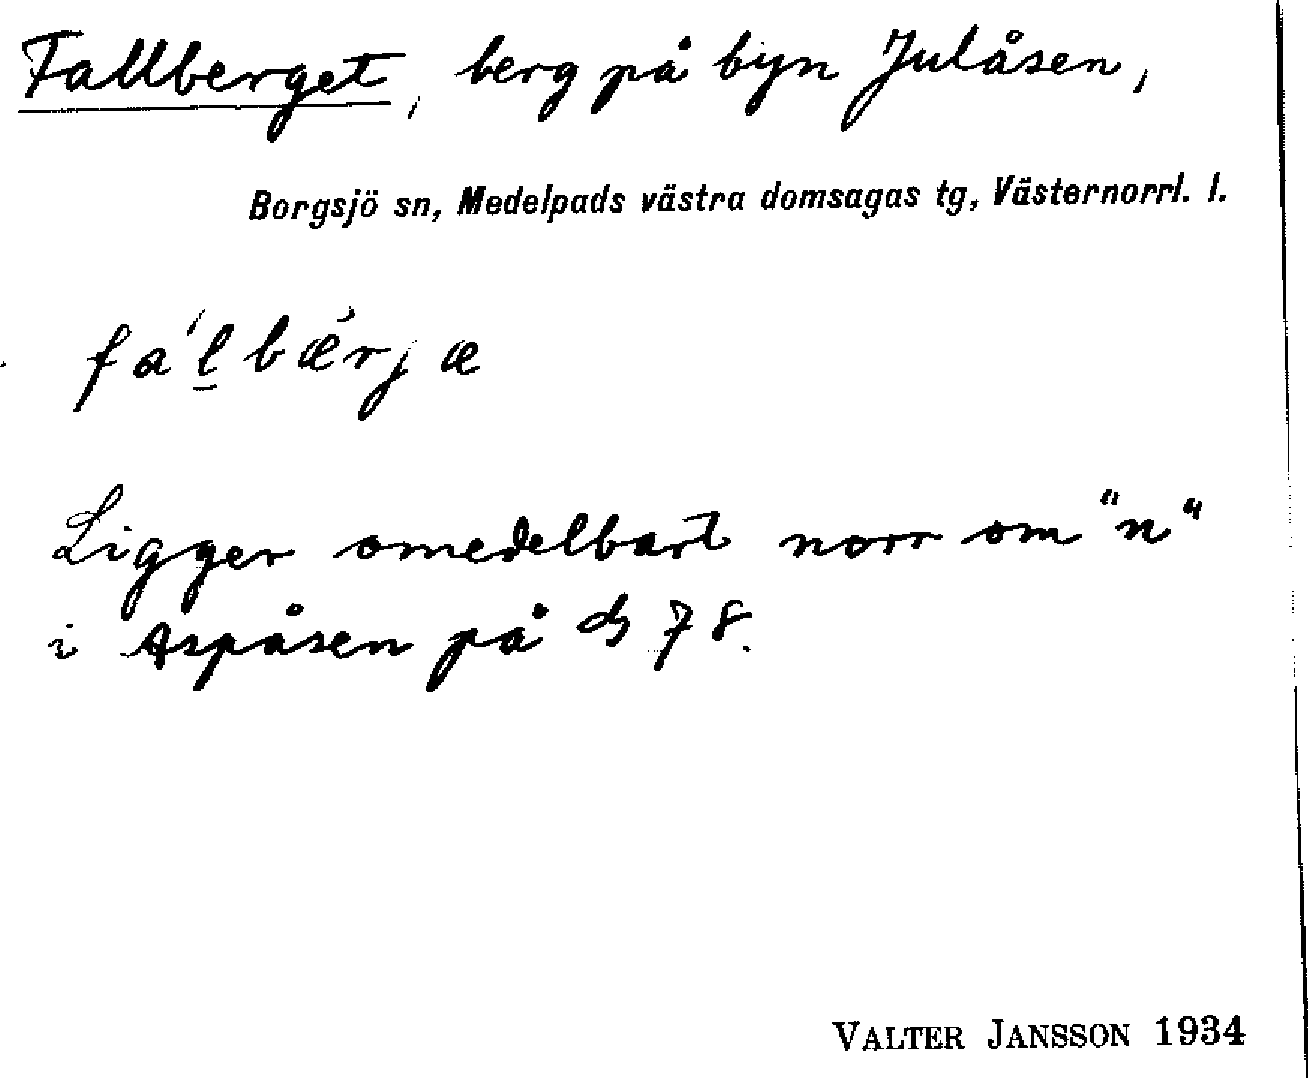 Fallberget, berg på byn Julåsen,
Borgsjö sn, Medelpads västra domsagas tg, Västernorrl. l.
fa´l̲bǽrjæ
Ligger omedelbart norr om "n"
i Aspåsen på ds 78.
VALTER JANSSON 1934